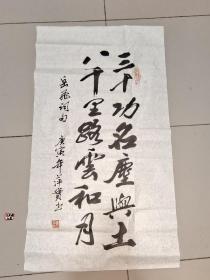 三十功名塵與土
八千里路雲和月
岳飛词句
庚寅年